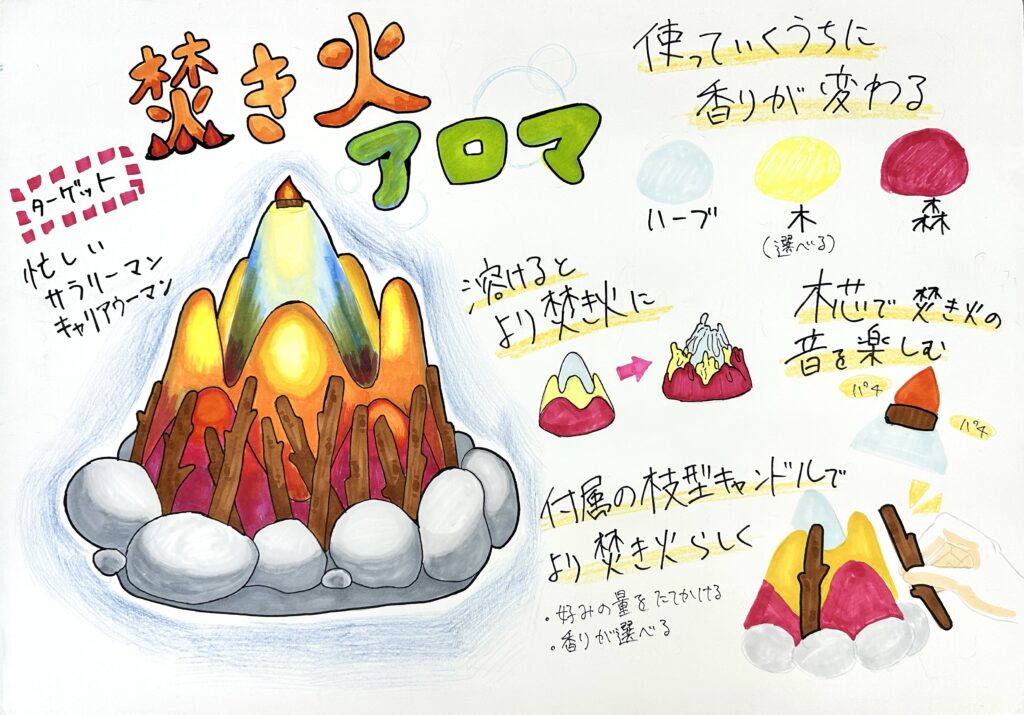 焚き火
アロマ
ターゲット
忙しい
サラリーマン
キャリアウーマン
使っていくうちに
香りが変わる
ハーブ
木
(選べる)
森
溶けると
より焚き火に
木芯で焚き火の
音を楽しむ
パチ
パチ
付属の枝型キャンドルで
より焚き火らしく
・好みの量をたてかける
・香りが選べる